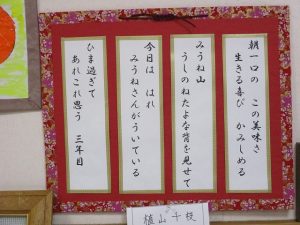 朝一口の この美味さ
生きる喜び かみしめる
みうね山
うしのねたよな背を見せて
今日は はれ
みうねさんがういている
ひま過ぎて
あれこれ思う 三年目
植山千枝